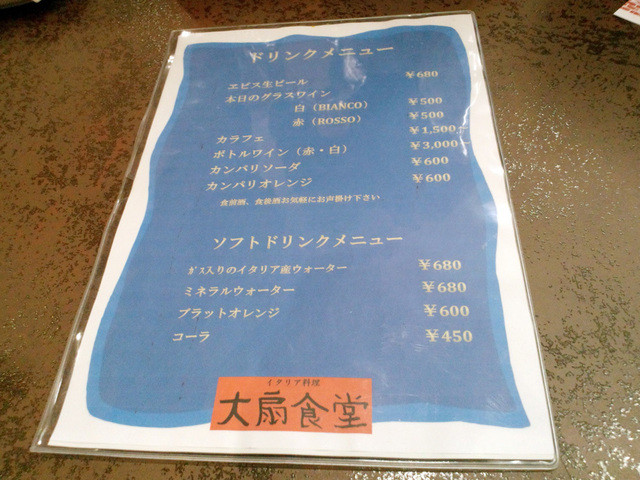 ドリンクメニュー
ヱビス生ビール ¥680
本日のグラスワイン
白（BIANCO） ¥500
赤（ROSSO） ¥500
カラフェ ¥1,500~
ボトルワイン（赤・白） ¥3,000~
カンパリソーダ ¥600
カンパリオレンジ ¥600
食前酒、食後酒お気軽にお声掛け下さい
ソフトドリンクメニュー
ｶﾞｽ入りのイタリア産ウォーター ¥680
ミネラルウォーター ¥680
ブラットオレンジ ¥600
コーラ ¥450
イタリア料理
大扇食堂